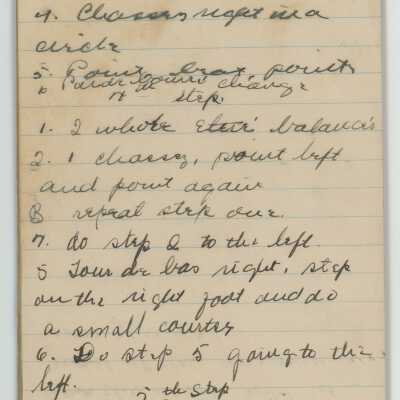 4. Chassey right in a
circle
5. Point, point
change
step.
1. 2 whole balances
2. 1 chassey, point left
and point again
3 repeat step one.
7. do step 2 to the left.
5 Tour de bas right, step
on the right foot and do
a small courtesy
6. Do step 5 going to the
left.
7 th step